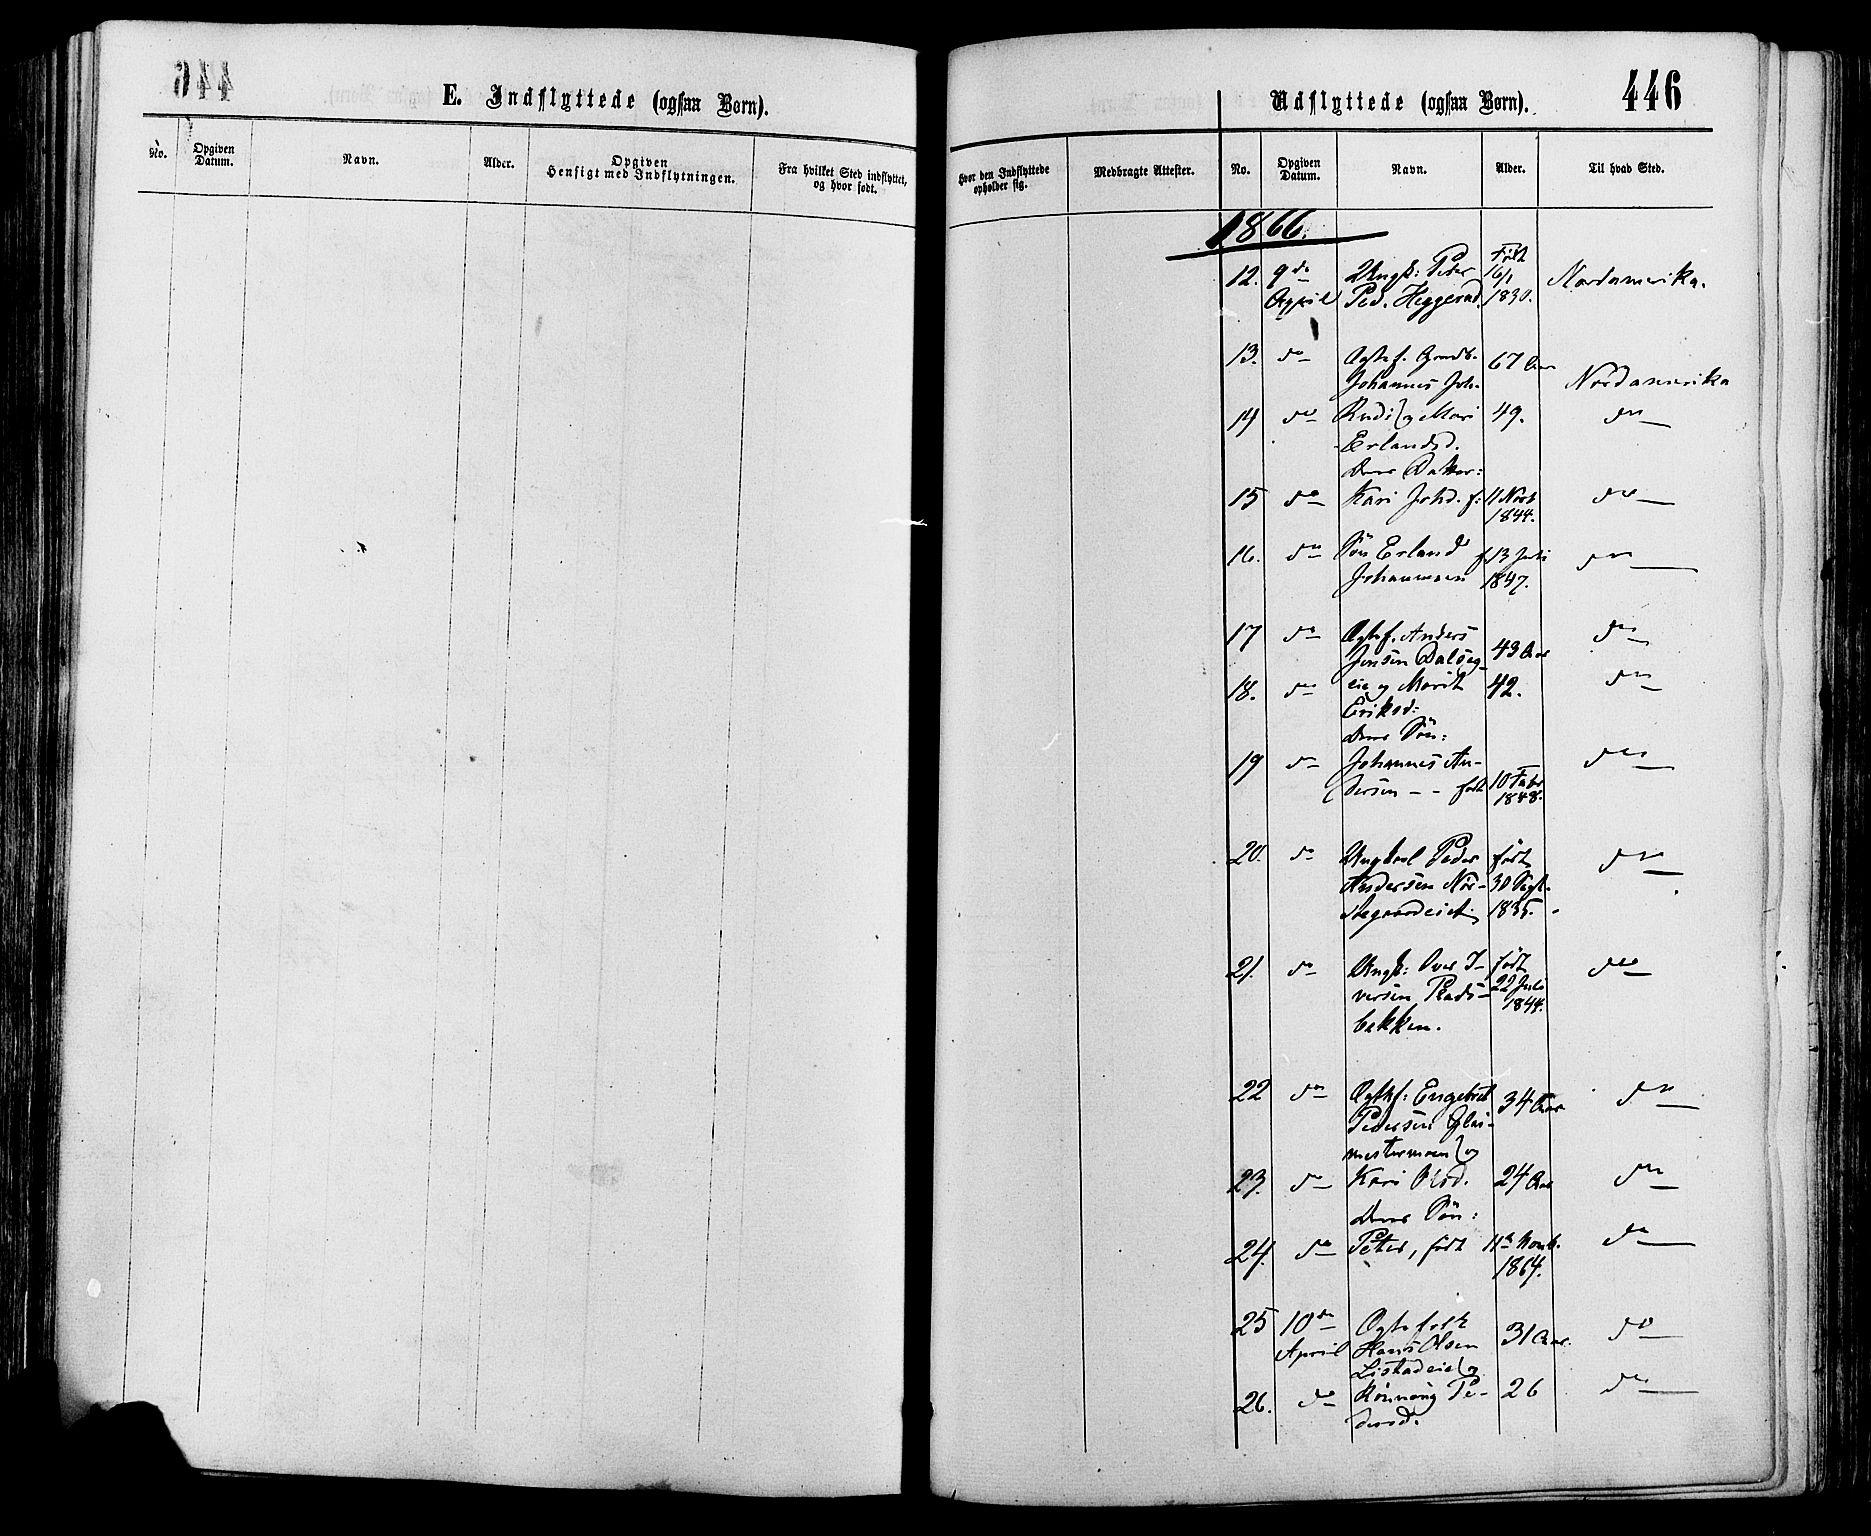 446
E. Indflyttede (ogsaa Børn).
No.
Opgiven Datum.
Navn.
Alder.
Opgiven Hensigt med Indflytningen.
Fra hvilket Sted indflyttet, og hvor født.
Udflyttede (ogsaa Børn).
446
Hvor den Indflyttede opholder sig.
Medbragte Attester.
No.
Opgiven Datum.
Navn.
Alder.
Til hvad Sted.
1866.
Født
12. 9de Ungk: Peder 16/1 Nordamerika.
April Ped. Heggerud. 1830.
13. do Ægtef. 67 Aar
Johannes Joh. Nordamerika
14 do og Mari 49. do
Erlandsd.
deres Datter:
15 do Kari Johd. f: 11 Novb do
1844.
16. do Søn Erland f. 13 Juli do
Johannesen 1847.
17 do Ægtef. Anders do
Jensen Dalseg- 43 Aar
18. do eie og Marit 42. do
Eriksd:
deres Søn:
19 do Johannes An- do
dersen - - født 10 Febr
1848.
20. do Ungkarl Peder født do
Andersen Nor- 30 Sept.
stegaardeiet. 1835.
21. do Ungk: Iver I- født do
versen 22 Juli
bakken. 1844.
22 do Ægtef: Engebret 34 Aar do
Pedersen Glas-
mestermoen og
23. do Kari Olsd. 24 Aar do
deres Søn:
24. do Peter, født 11te Novb. do
1864.
25 10de Ægtefolk do
April Hans Olsen 31 Aar.
Listadeiet og
26. do Rønnaug Pe- 26 do
dersd.